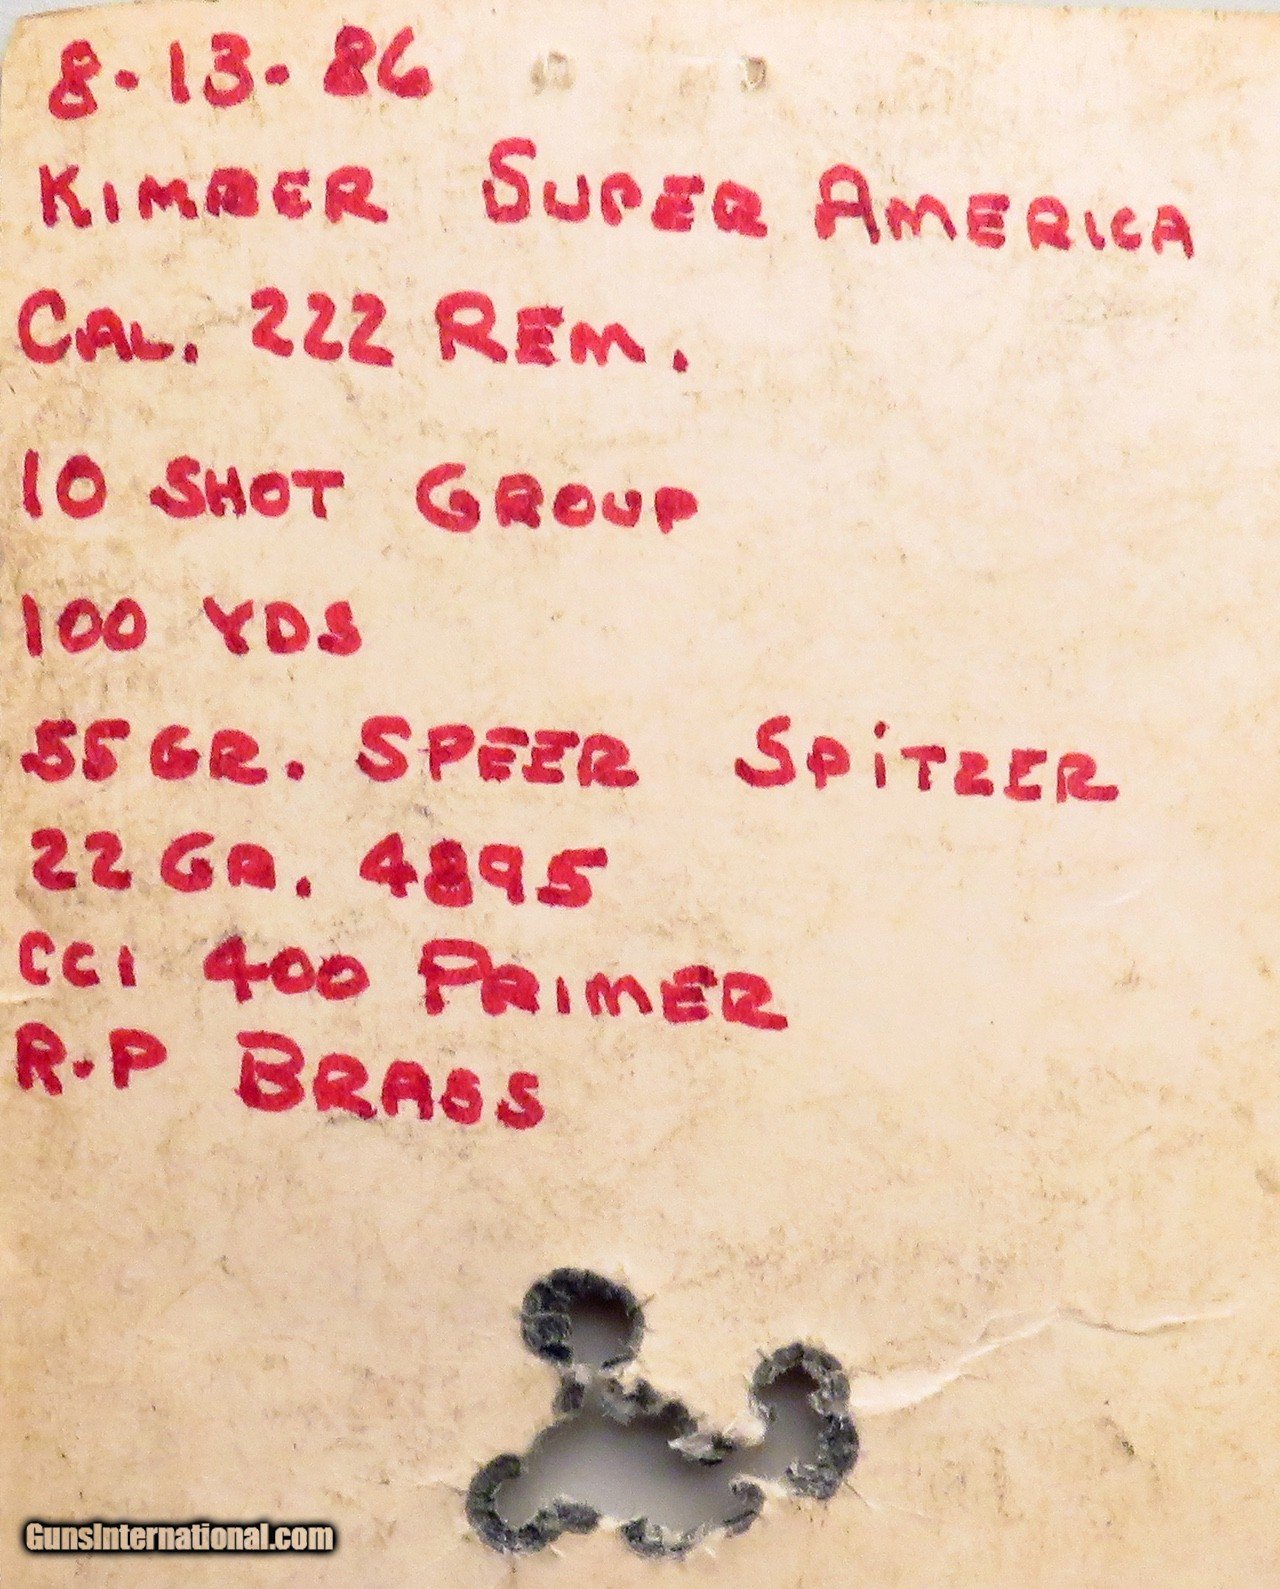 8-13-86
KIMBER SUPER AMERICA
CAL. 222 REM.
10 SHOT GROUP
100 YDS
55 GR. SPEER SPiTZER
22 GR. 4895
CCI 400 PRIMER
R-P BRASS
GunsInternational.com